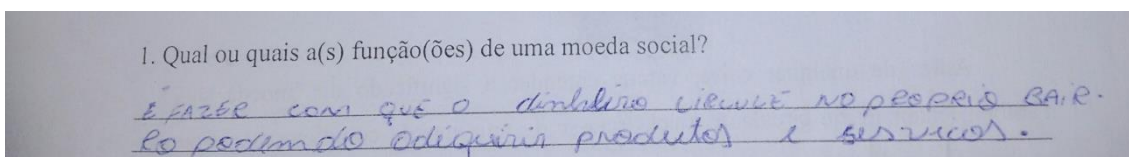 1. Qual ou quais a(s) função(ões) de uma moeda social?
É FAZER COM QUE O dinheiro CIRCULE NO PROPRIO BAIR-
RO podendo adiquirir produtos e serviços.